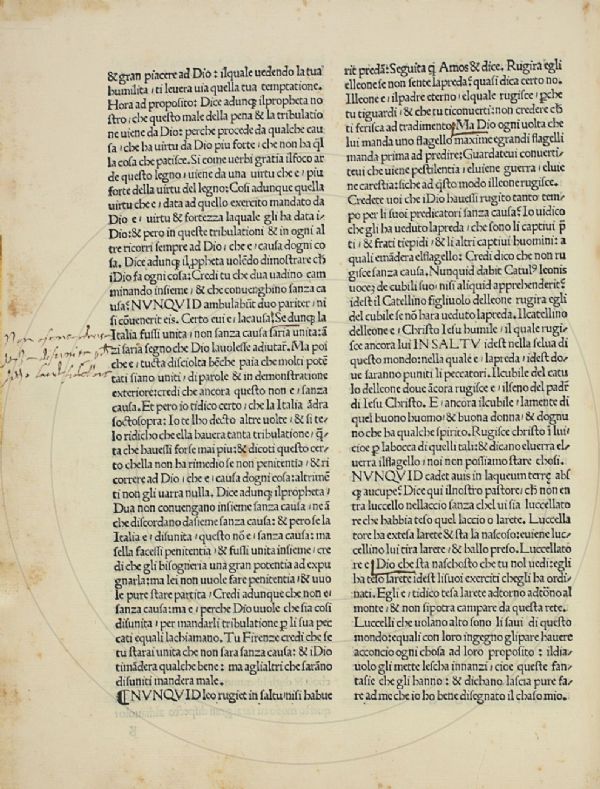 & gran piacere ad Dio: ilquale uedendo la tua
humilita/ ti leuera uia quella tua temptatione.
Hora ad proposito: Dice adunq̃ ilpropheta no
stro/che questo male della pena & la tribulatio
ne uiene da Dio: perche procede da qualche cau
sa/che ha uirtu da Dio piu forte/che non ha q̃l
la cosa che patisce. Si come uerbi gratia ilfoco ar
de questo legno/uiene da una uirtu che e/piu
forte della uirtu del legno: Cosi adunque quella
uirtu che e/data ad quello exercito mandato da
Dio e/uirtu & fortezza laquale gli ha data i̅/
Dio: & pero in queste tribulationi & in ogni al
tre ricorri sempre ad Dio/che e/causa dogni co
sa. Dice adunq̃ il p̱pheta uolẽdo dimostrare ch̃
i̅Dio fa ogni cosa: Credi tu che dua uadino cam
minando insieme/& che conuenghino sanza ca
usa? NVNQVID ambulabũt duo pariter/ni
si cõuenerit eis. Certo cui e/lacausa? Se dunq̃ la
Italia fussi unita/non sanza causa saria unita: ã
zi saria segno che Dio lauolesse adiutar̃. Ma poi
che e/tucta disciolta bẽche paia che molti potẽ
tati siano uniti/di parole & in demonstratione
exteriore: credi che ancora questo non e/sanza
causa. Et pero io tidico certo/che la Italia ãdra
soctosopra: Io te lho decto altre uolte/& si te/
lo ridicho che ella hauera tanta tribulatione/q̃/
ta che hauessi forse mai piu: & dicoti questo cer
to chella non ha rimedio se non penitentia/& ri
correre ad Dio/che e causa dogni cosa: altrimẽ
ti non gli uarra nulla. Dice adunq̃ ilpropheta/
Dua non conuengano insieme sanza causa/ne ã
che discordano dasieme sanza causa: & pero se la
Italia e/disunita/questo nõ e/sanza causa: ma
sella facessi penitentia/& fussi unita insieme/cre
di che gli bisogneria una gran potentia ad expu
gnarla: ma lei non uuole fare penitentia/& uuo
le pure stare partita/Credi adunque che non e/
sanza causa: ma e/perche Dio uuole che sia cosi
disunita/per mandarli tribulatione p̱ li sua pec
cati equali lachiamano. Tu Firenze credi che se
tu starai unita che non sara sanza causa: & i̅Dio
timãdera qualche bene: ma aglialtri che sarãno
disuniti mandera male.
¶NVNQVID leo rugiet in saltu/nisi habue
rit predã: Seguita q̃ Amos & dice. Rugira egli
elleone se non sente lapreda? quasi dica certo no.
Illeone e/ilpadre eterno/elquale rugisce/p̱che
tu tiguardi/& che tu ticonuerti: non credere ch̃
ti ferisca ad tradimento: Ma Dio ogni uolta che
lui manda uno flagello maxime egrandi flagelli
manda prima ad predire: Guardateui conuerti/
teui che uiene pestilentia/eluiene guerra/eluie
ne carestia: siche ad q̃sto modo illeone rugisce.
Credete uoi che i̅Dio hauessi rugito tanto tem/
po per li suoi predicatori sanza causa? Io uidico
che gli ha ueduto lapreda/che sono li captiui p̃
ti/& frati tiepidi/& li altri captiui huomini: a
quali emãdera elflagello: Credi dico che non ru
gisce sanza causa. Nunquid dabit Catul⁹ leonis
uocez de cubili suo/nisi aliquid apprehenderit?
idest il Catellino figliuolo delleone rugira egli
del cubile se nõ hara ueduto lapreda. Ilcatellino
delleone e/Christo Iesu humile/il quale rugi/
sce ancora lui IN SALTV idest nella selua di
questo mondo: nella quale e/lapreda/idest do/
ue saranno puniti li peccatori. Ilcubile del catu
lo delleone doue ãcora rugisce e/ilseno del padr̃
di Iesu Christo. E/ancora ilcubile/lamente di
quel buono huomo/& buona donna/& dognu
no che ha qualche spirito. Rugisce christo i̅ lui/
cioe p̱ labocca di quelli tali: & dicano eluerra el
uerra ilflagello/noi non possiamo stare chosi.
NVNQVID cadet auis in laqueum terrę absq
q̃ aucupe? Dice qui ilnostro pastore: ch̃ non en
tra luccello nellaccio sanza chel ui sia luccellato
re che habbia teso quel laccio o larete. Luccella
tore ha extesa larete & sta la nascoso: euiene luc/
cellino lui tira larete/& ballo preso. Luccellato
re e/Dio che sta naschosto che tu nol uedi: egli
ha teso larete idest lisuoi exerciti chegli ha ordi
nati. Egli e/tidico tesa larete adtorno adtõno al
monte/& non sipotra campare da questa rete.
Luccelli che uolano alto sono li saui di questo
mondo: equali con loro ingegno glipare hauere
acconcio ogni chosa ad loro proposito: ildia/
uolo gli mette lescha innanzi/cioe queste fan/
tasie che gli hanno: & dichano lascia pure fa/
re ad me che io ho bene disegnato il chaso mio.